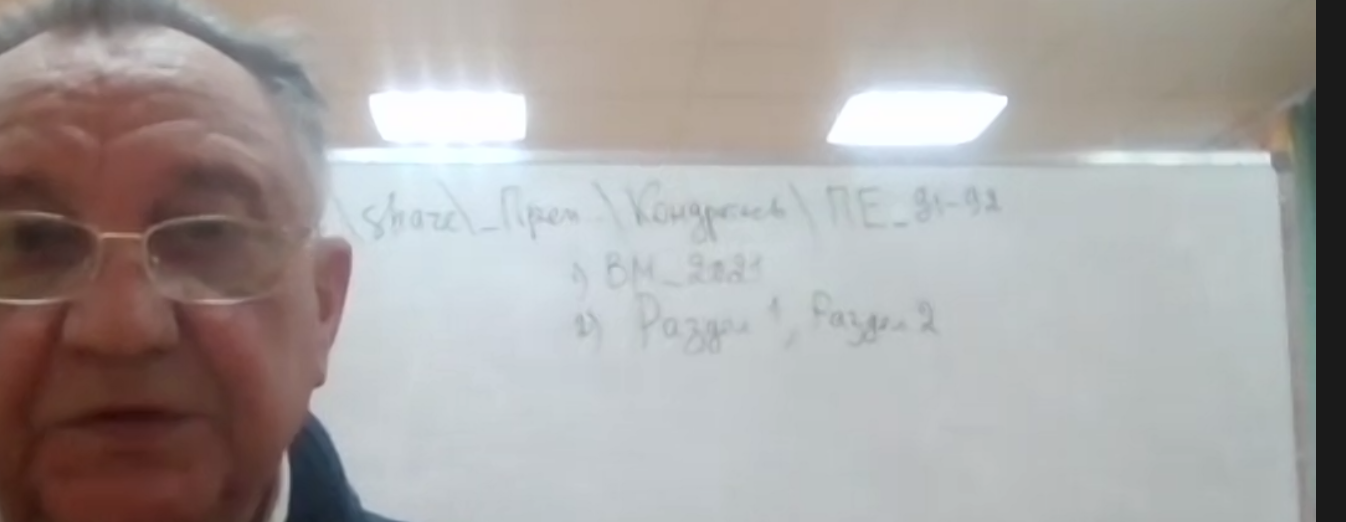 \share\_Преп \Кондратьев\ ПЕ_91-92
1) ВМ_2021
2) Раздел 1, Раздел 2